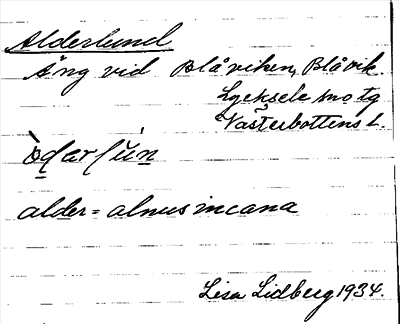 Alderlund
Äng vid Blåviken, Blåvik.
Lycksele smotg
Västerbottens l.
alder = alnus incana
Lisa Lidberg 1934.